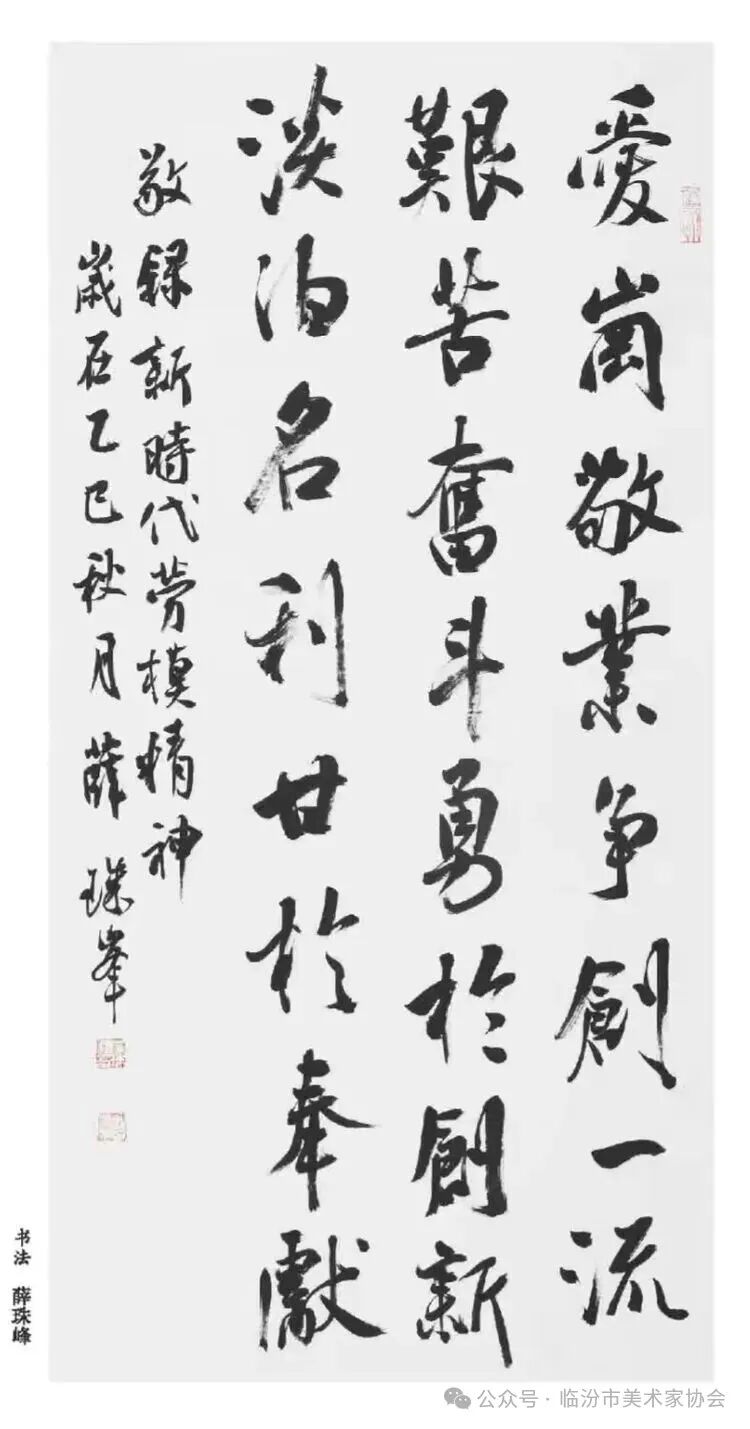 愛崗敬業争創一流
艱苦奮斗勇於創新
淡泊名利甘於奉獻
敬録新時代劳模精神
歲在乙巳秋月薛珠峯
书法 薛珠峰
公众号·临汾市美术家协会